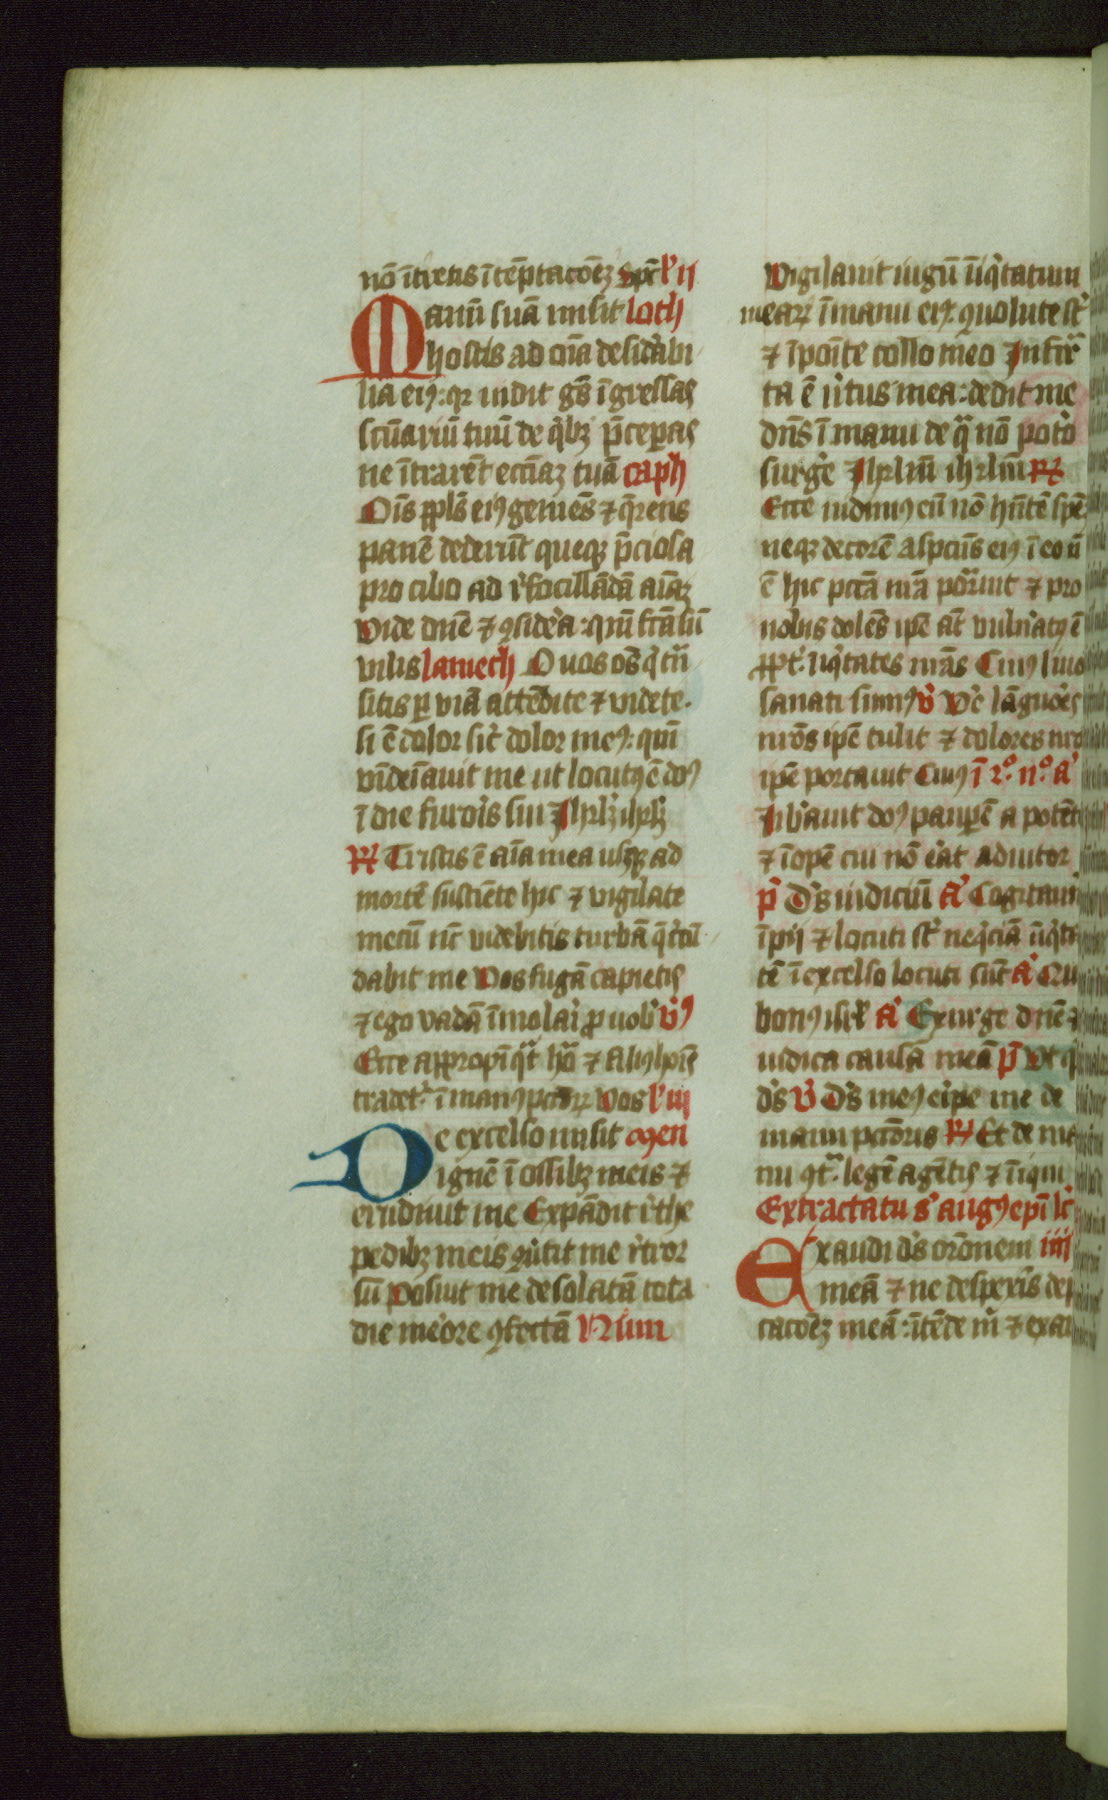 nō ītretis ītēptacōēz Spc̄ l' ij
Manū suā misit Ioth
hostis ad oīa desid'abi
lia ei9: qr uidit gēs īgressas
scūariū tuū de q'bz p̄ceperas
ne ītrarēt eccīaz tuā caph
Oīs ppl's ei9 gemēs ⁊ q̄rens
panē dederūt queqz p̄ciosa
pro cibo ad r'focillādā aīaz
Vide dn̄e ⁊ 9sid'a: qm̄ fc̄a sū
uilis lamech O uos oēs q' trā
sitis p viā attēdite ⁊ videte.
si ē dolor sic' dolor me9: qm̄
vīdeīauit me ut locut9 ē do9
ī die furoris sui Ihrl'z ihrl'z
R Tristis ē aīa mea usqz ad
mortē sustiēte hic ⁊ vigilate
mecū nc̄ videbitis turbā q̄ c'cū
dabit me Vos fugā capietis
⁊ ego vadā īmolar'i p uob' V9
Ecce appropīq̄t ho'a ⁊ fili9 hoīs
tradet' ī man9 pctor⁊ Vos l' iij
De excelso misit Men
ignē ī ossibz meis ⁊
erudiuit me Expādit r'the
pedibz meis 9u'tit me r'tror
sū Posuit me desolatā tota
die me'ore 9fectā Nun
Vigilauit iugū īiq'tatum
mear⁊ ī manu ei9: 9uolute st̄
⁊ īpoīte collo meo Infir'
ta ē v'tus mea: dedit me
dn̄s ī manu de q̄ nō pot'o
surg'e Ihrlm̄ ihrlm̄ R
Ecce uidim9 eū nō hn̄tē spē
neqz decorē aspc̄us ei9 ī eo n̄
ē hic pctā nr̄a portauit ⁊ pro
nobis dolēs ip̄e at̄ vuln'at9 ē
ppt' īiq'tates nr̄as Cui9 liuo
sanati sum9 V Ve'e lāguor'es
nr̄os ip̄e tulit ⁊ dolores nr̄o
ip̄e portauit Cui9 ī 2° n° A'
Lib'auit do9 paup̄ē a potēt
⁊ īopē cui nō e'at adiutor
p' D's iudiciū A' Cogitaue
īpij ⁊ locuti st̄ neq'ciā īiq'ta
tē ī excelso locuti sūt A' Qu
bon9 isr̄l A' Exurge dn̄e ⁊
iudica causā meā p̄ Vt q'
d's V D's me9 eripe me de
manu pctoris R Et de ma
nu 9t' legē agētis ⁊ īiqui
Ex tractatu s' aug9 ep̄i lc̄
Exaudi d's orōnem iiij
meā ⁊ ne despexis dep
cacōēz meā: ītēde m' ⁊ exau